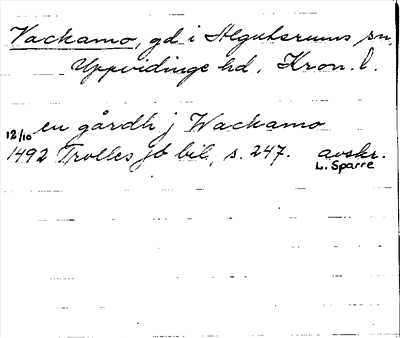 Vackamo, gd i Algutsrums sn,
Uppvidinge hd, Kron. l.
12/10 en gårdh j Wackamo
1492 Trolles jb bil, s. 247. avskr.
L. Sparre